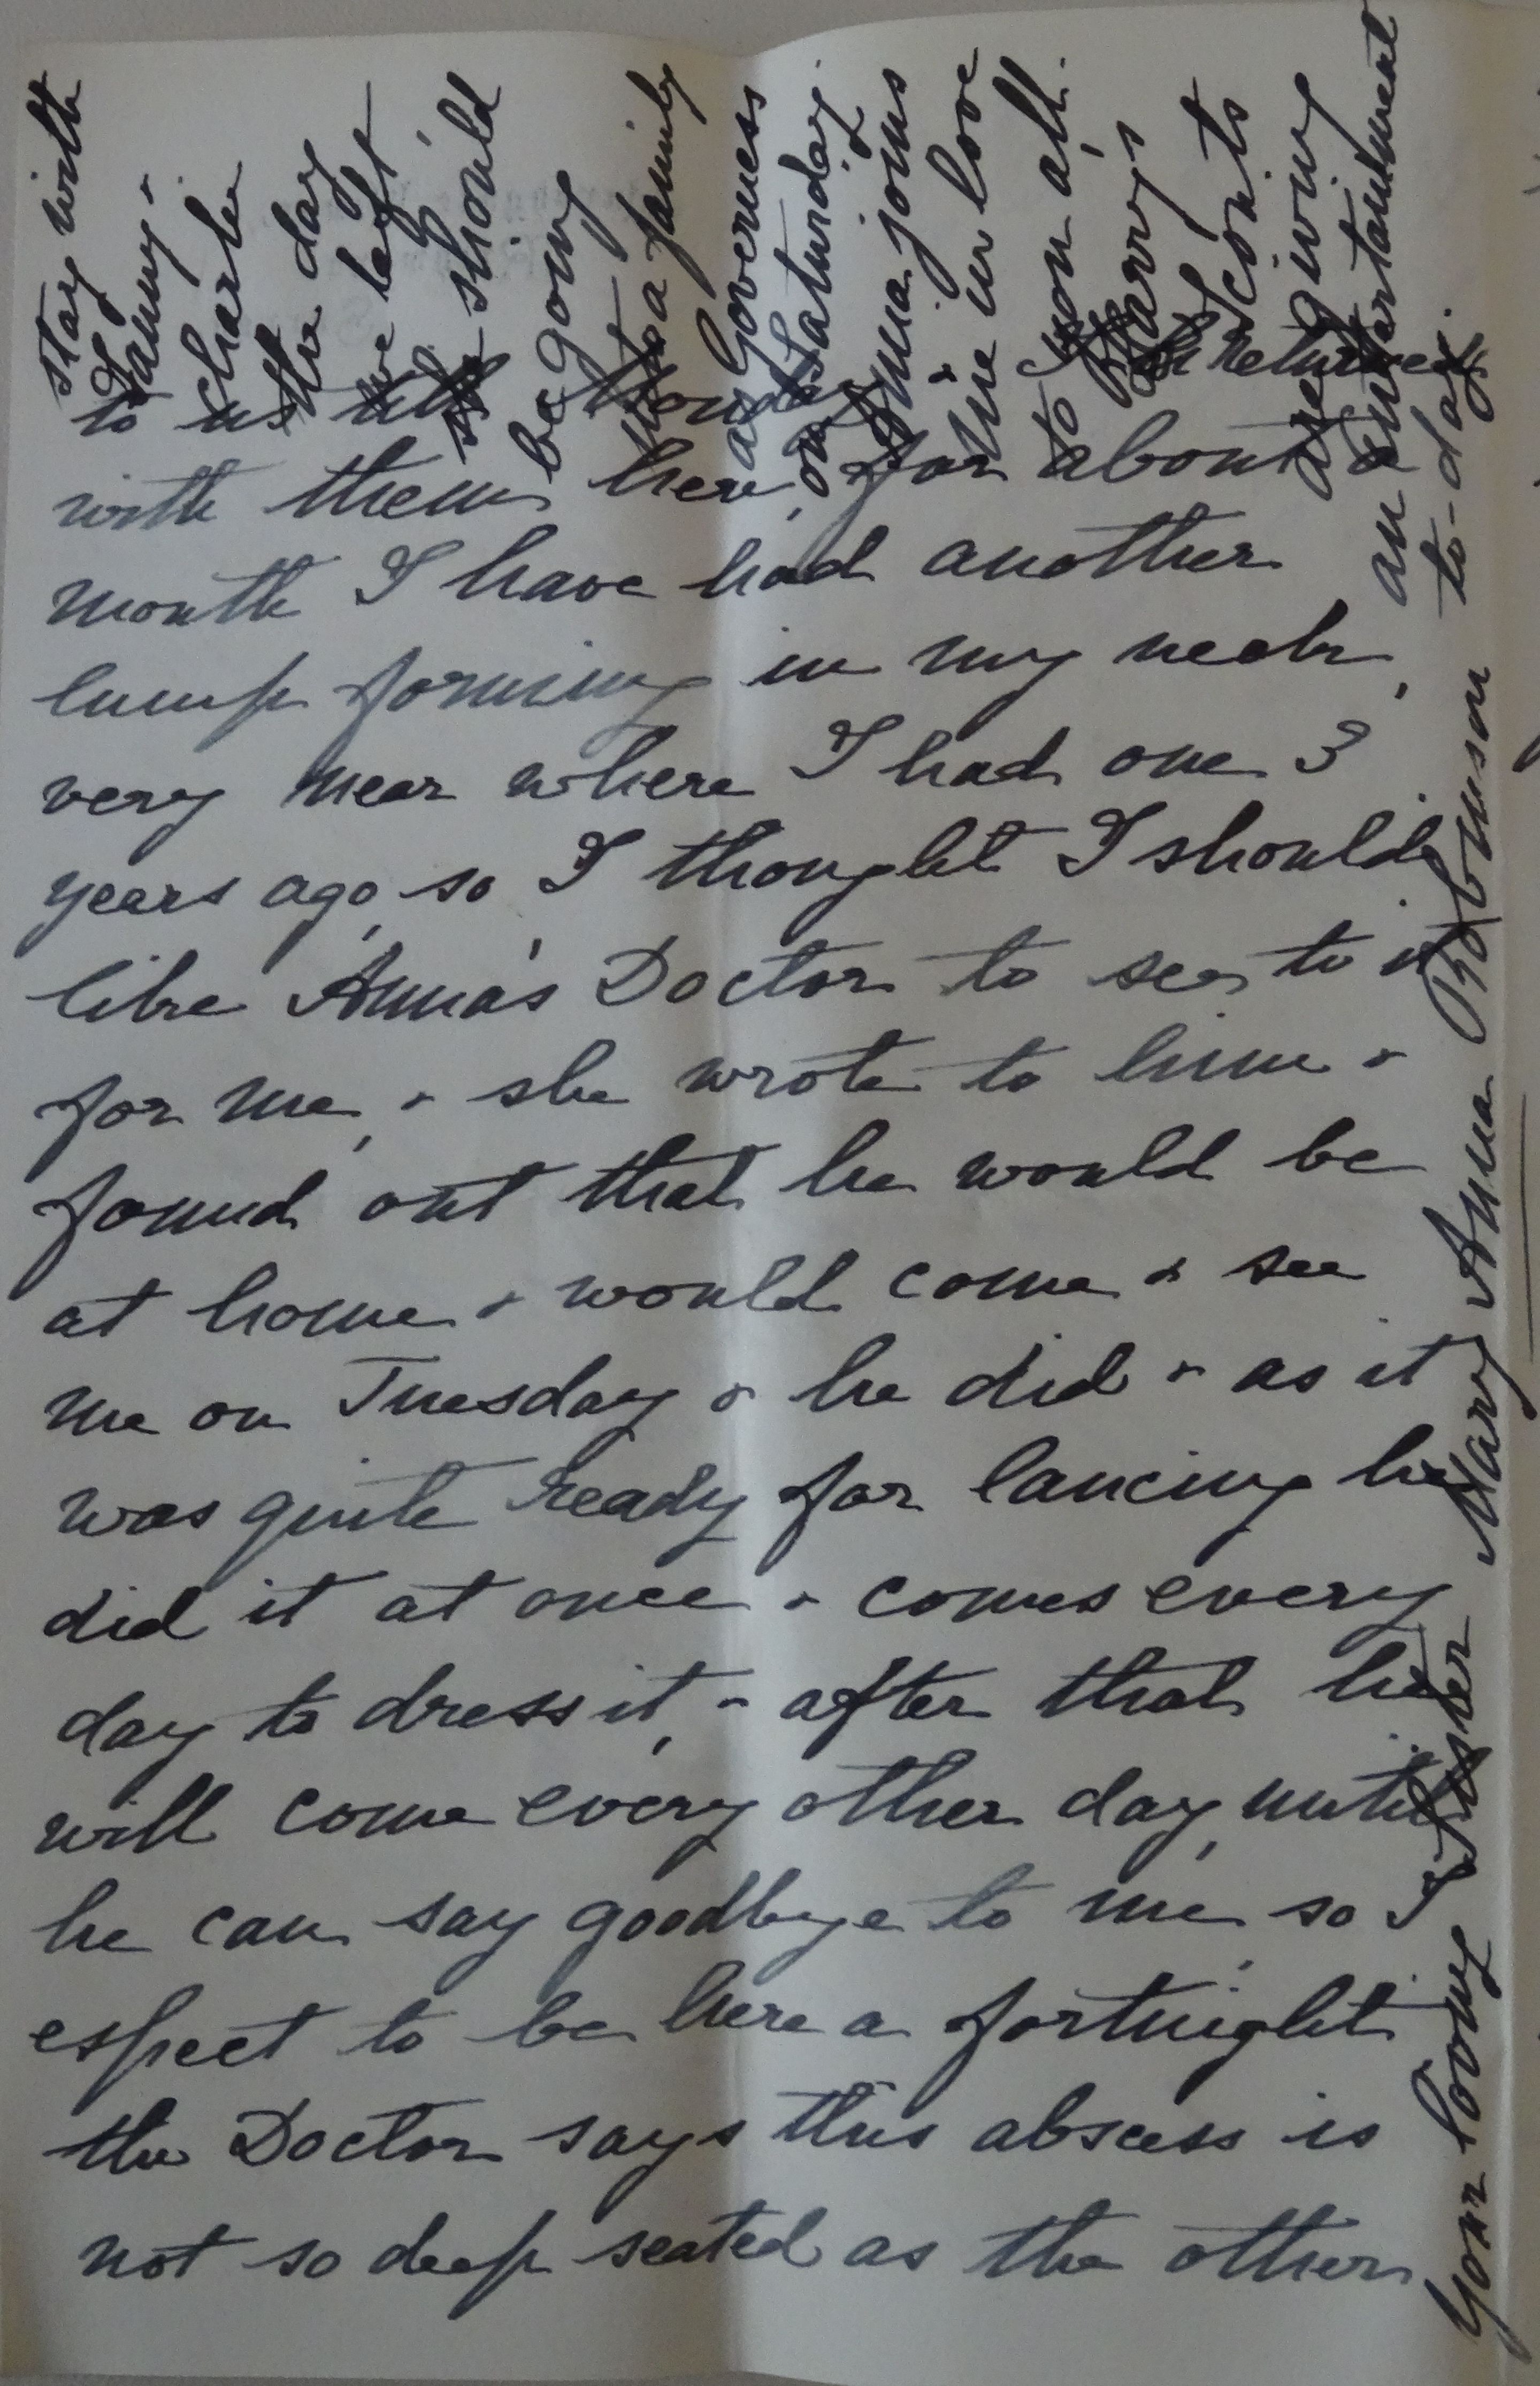 to us till Monday & I returned
with them here, for about a
month I have had another
lump forming in my neck,
very near where I had one 3
years ago, so I thought I should
like Anna's Doctor to see to it
for me, & she wrote to him &
found out that he would be
at home & would come & see
me on Tuesday & he did & as it
was quite ready for lancing he
did it at once & comes every
day to dress it, & after that he
will come every other day, until
he can say goodbye to me, so I
espect to be here a fortnight
the Doctor says this abscess is
not so deep seated as the other
stay with
Fanny &
Charlie
the day
we left,
she should
be going
to a family
as Governess
on Saturday.
Anna joins
me in love
to you all.
Harry's
Scouts
are giving
an entertainment
to-day.
Your loving Sister Mary Anna Robinson